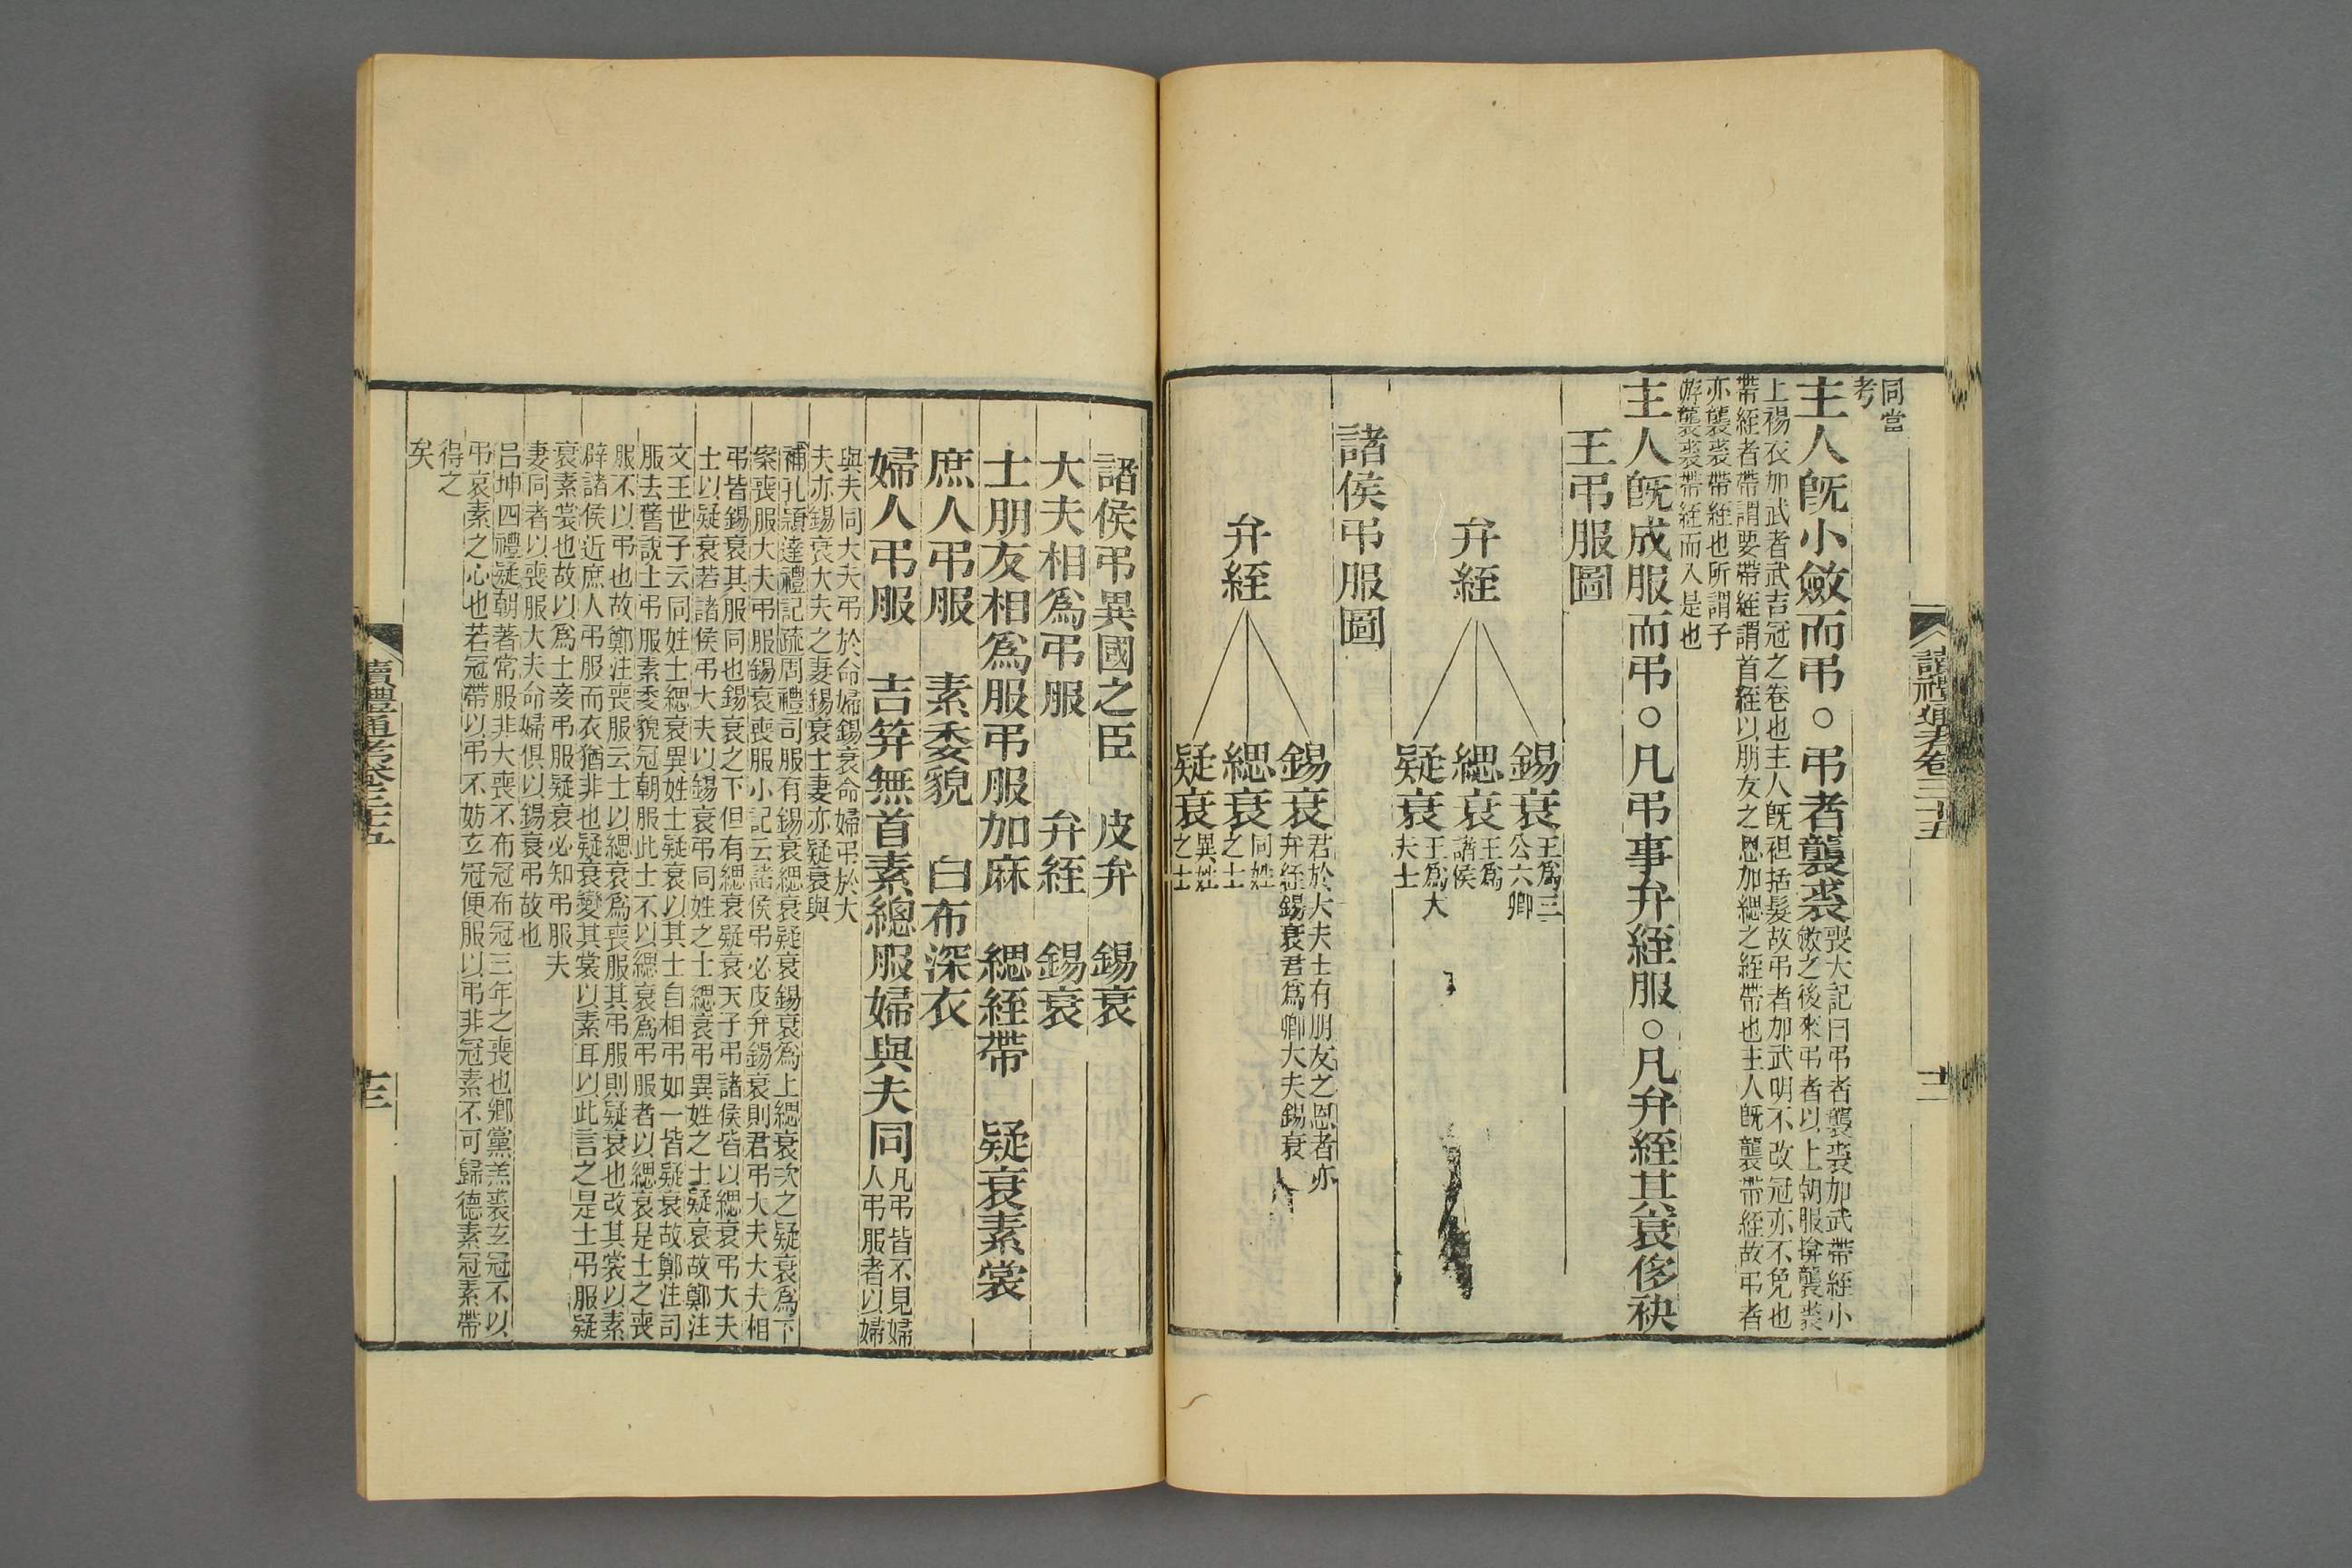 讀禮通考卷三十五
十二
同當
考
主人旣小斂而弔○弔者襲裘
喪大記曰弔者襲裘加武帶絰小
斂之後來弔者以上朝服揜襲裘
上裼衣加武者武吉冠之卷也主人旣袒括髮故弔者加武明不改冠亦不免也
帶絰者帶謂要帶絰謂首絰以朋友之恩加緦之絰帶也主人旣襲帶絰故弔者
亦襲裘帶絰也所謂子
游襲裘帶絰而入是也
主人旣成服而弔○凡弔事弁絰服○凡弁絰其衰侈袂
王弔服圖
弁絰
錫衰
王爲三
公六卿
緦衰
王爲
諸侯
疑衰
王爲大
夫士
諸侯弔服圖
弁絰
錫衰
君於大夫士有朋友之恩者亦
弁絰錫衰君爲卿大夫錫衰
緦衰
同姓
之士
疑衰
異姓
之士
諸侯弔異國之臣 皮弁 錫衰
大夫相爲弔服 弁絰 錫衰
士朋友相爲服弔服加麻 緦絰帶 疑衰素裳
庶人弔服 素委貌 白布深衣
婦人弔服 吉笄無首素總服婦與夫同
凡弔皆不見婦
人弔服者以婦
與夫同大夫弔於命婦錫衰命婦弔於大
夫亦錫衰大夫之妻錫衰士妻亦疑衰與
補孔穎達禮記疏周禮司服有錫衰緦衰疑衰錫衰爲上緦衰次之疑衰爲下
案喪服大夫弔服錫衰喪服小記云諸侯弔必皮弁錫衰則君弔大夫大夫相
弔皆錫衰其服同也錫衰之下但有緦衰疑衰天子弔諸侯皆以緦衰弔大夫
士以疑衰若諸侯弔大夫以錫衰弔同姓之士緦衰弔異姓之士疑衰故鄭注
文王世子云同姓士緦衰異姓士疑衰以其士自相弔如一皆疑衰故鄭注司
服去舊說士弔服素委貌冠朝服此士不以緦衰爲弔服者以緦衰是士之喪
服不以弔也故鄭注喪服云士以緦衰爲喪服其弔服則疑衰也改其裳以素
辟諸侯近庶人弔服而衣猶非也疑衰變其裳以素耳以此言之是士弔服疑
衰素裳也故以爲士妾弔服疑衰必知弔服夫
妻同者以喪服大夫命婦俱以錫衰弔故也
呂坤四禮疑朝著常服非大喪不布冠布冠三年之喪也鄉黨羔裘玄冠不以
弔哀素之心也若冠帶以弔不妨玄冠便服以弔非冠素不可歸德素冠素帶
得之
矣
讀禮通考卷三十五
十三